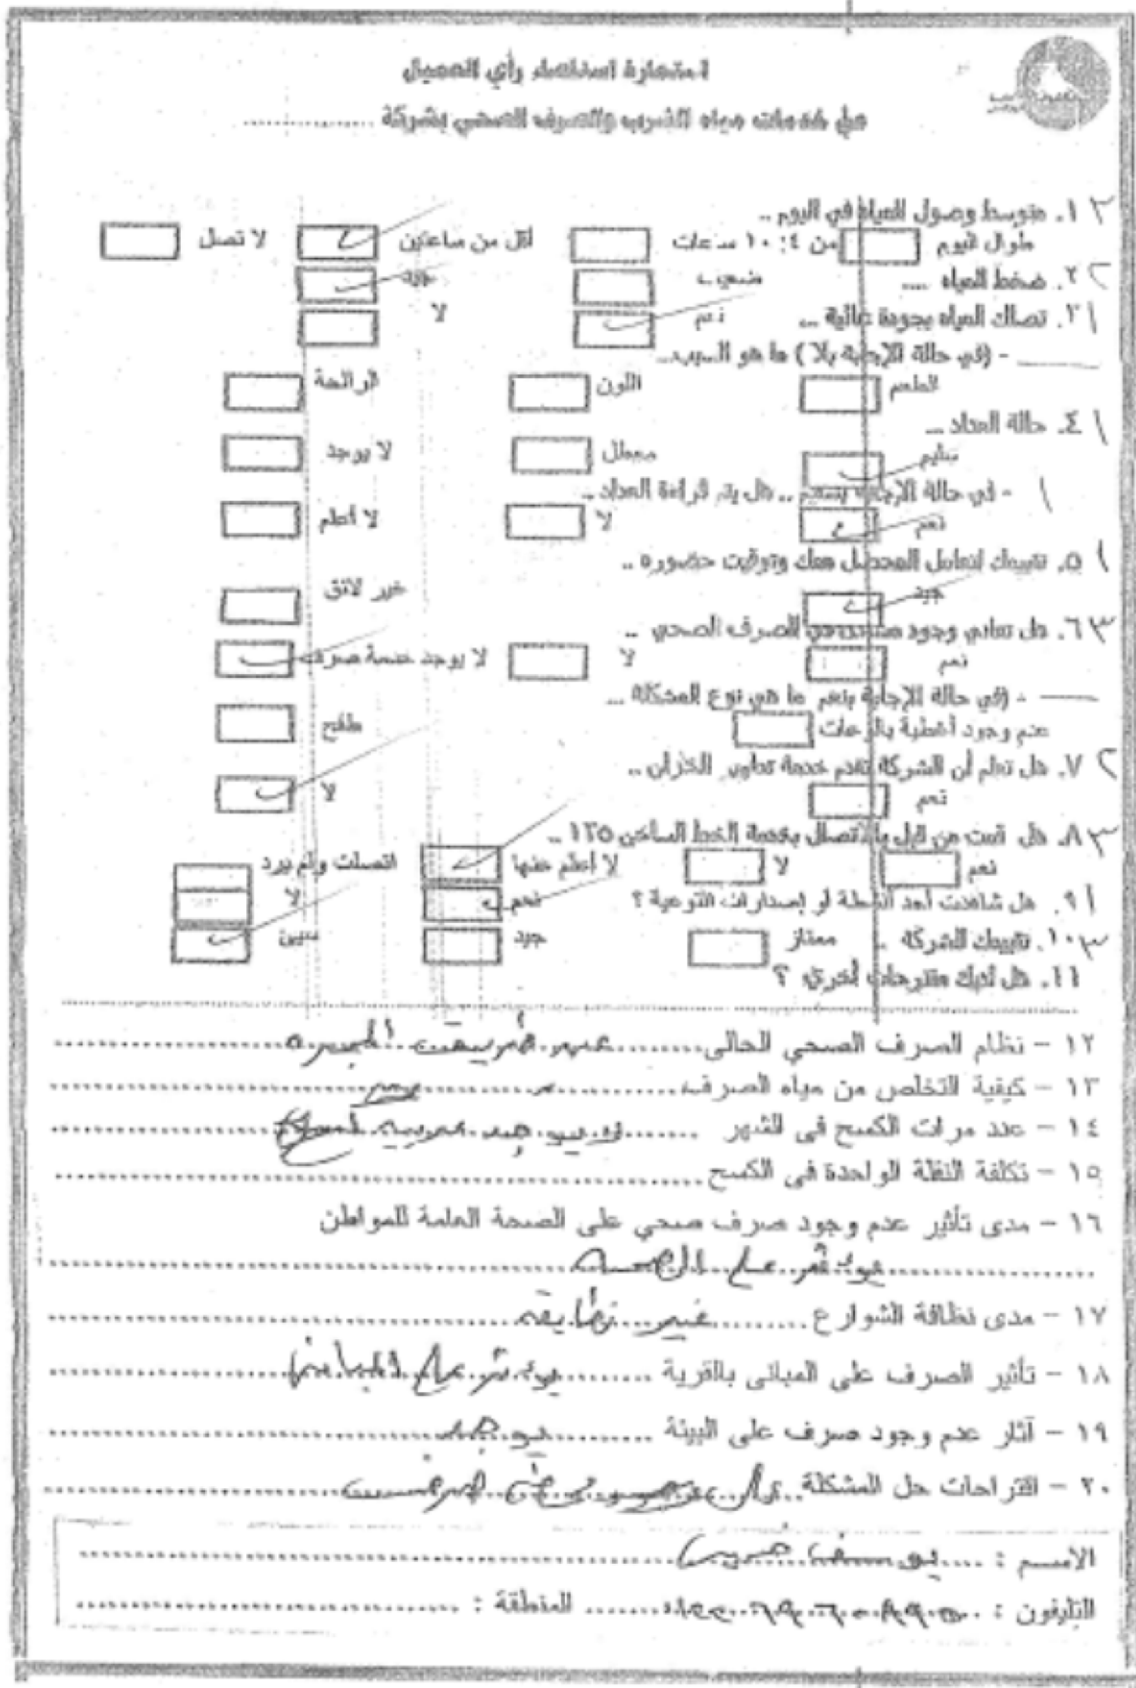 استمارة استقصاء رأي العميل
عن خدمات مياه الشرب والصرف الصحي بشركة ..............
٣ ١. متوسط وصول المياه في اليوم ..
طوال اليوم من ٤: ١٠ ساعات أقل من ساعتين لا تصل
٢ ٢. ضغط المياه .... ضعيف جيد
١ ٣. تصلك المياه بجودة عالية ... نعم لا
- (في حالة الإجابة بلا ) ما هو السبب...
الطعم اللون الرائحة
١ ٤. حالة العداد ...
سليم معطل لا يوجد
١ - في حالة الإجابة بسليم .. هل يتم قراءة العداد ..
نعم لا لا أعلم
١ ٥. تقييمك لتعامل المحصل معك وتوقيت حضوره ..
جيد غير لائق
٣ ٦. هل تعاني وجود في الصرف الصحي ..
نعم لا لا يوجد خدمة صرف
- (في حالة الإجابة بنعم ما هي نوع المشكلة ...
عدم وجود أغطية بالوعات طفح
٢ ٧. هل تعلم أن الشركة تقدم خدمة تطهير الخزان ..
نعم لا
٣ ٨. هل قمت من قبل بالاتصال بخدمة الخط الساخن ١٢٥ ..
نعم لا لا أعلم عنها اتصلت ولم يرد
١ ٩. هل شاهدت أحد أنشطة أو إصدارات التوعية ؟ نعم لا
٣ ١٠. تقييمك للشركة .. ممتاز جيد سيئ
١١. هل لديك مقترحات أخري ؟
١٢ - نظام الصرف الصحي الحالى
١٣ - كيفية التخلص من مياه الصرف
١٤ - عدد مرات الكسح فى الشهر
١٥ - تكلفة النقلة الواحدة فى الكسح
١٦ - مدى تأثير عدم وجود صرف صحي على الصحة العامة للمواطن
على الصحه
١٧ - مدى نظافة الشوارع غير نظيفه
١٨ - تأثير الصرف على المبانى بالقرية يؤثر على المبانى
١٩ - آثار عدم وجود صرف على البيئة يوجد
٢٠ - اقتراحات حل المشكلة
الاسم : يوسف
التليفون : المنطقة :